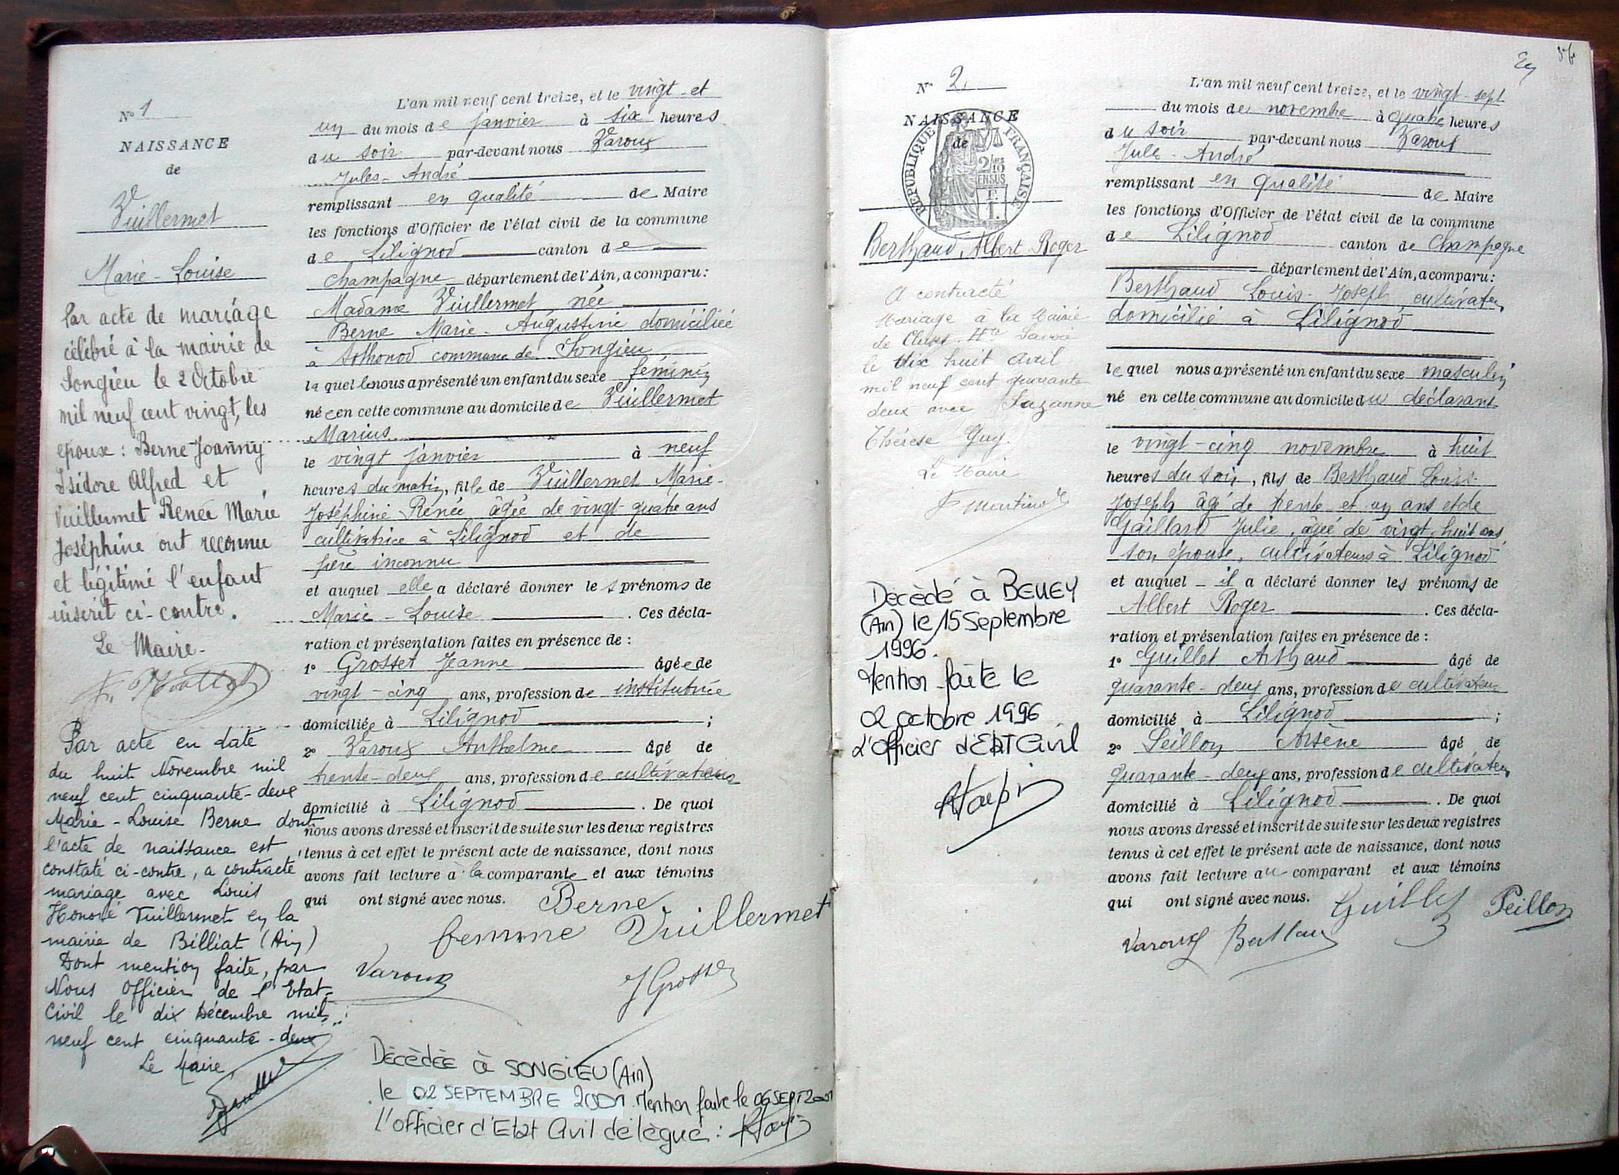 N° 1
NAISSANCE
de
Vuillermet
Marie-Louise
Par acte de mariage
célébré à la mairie de
Songieu le 2 Octobre
mil neuf cent vingt, les
époux : Berne Joanny
Isidore Alfred et
Vuillermet Renée Marie
Joséphine ont reconnu
et légitimé l'enfant
inscrit ci-contre.
Le Maire.
Par acte en date
du huit Novembre mil
neuf cent cinquante-deux
Marie-Louise Berne dont
l'acte de naissance est
constaté ci-contre, a contracté
mariage avec Louis
Honoré Vuillermet en la
mairie de Billiat (Ain)
Dont mention faite, par
Nous Officier de l'Etat-
Civil le dix Décembre mil
neuf cent cinquante-deux
Le Maire
L'an mil neuf cent treize, et le vingt et
un du mois de janvier à six heures
du soir par-devant nous Varoux
Jules-André
remplissant en qualité de Maire
les fonctions d'Officier de l'état civil de la commune
de Lilignod canton de
Champagne département de l'Ain, a comparu :
Madame Vuillermet née
Berne Marie-Augustine domiciliée
à Sothonod commune de Songieu
laquelle nous a présenté un enfant du sexe féminin
née en cette commune au domicile de Vuillermet
Marius
le vingt janvier à neuf
heures du matin, fille de Vuillermet Marie-
Joséphine Renée âgée de vingt quatre ans
cultivatrice à Lilignod et de
père inconnu
et auquel elle a déclaré donner les prénoms de
Marie-Louise. Ces décla-
ration et présentation faites en présence de :
1° Grosset Jeanne âgée de
vingt-cinq ans, profession de institutrice
domiciliée à Lilignod ;
2° Varoux Anthelme âgé de
trente-deux ans, profession de cultivateur
domicilié à Lilignod. De quoi
nous avons dressé et inscrit de suite sur les deux registres
tenus à cet effet le présent acte de naissance, dont nous
avons fait lecture à la comparante et aux témoins
qui ont signé avec nous. Berne
femme Vuillermet
Varoux J Grosset
Décèdée à SONGIEU (Ain)
le 02 SEPTEMBRE 2001 Mention faite le 06 SEPT 2001
L'officier d'Etat Civil délégué :
N° 2
NAISSANCE
de
REPUBLIQUE FRANÇAISE
2/10 EN SUS
Berthaud Albert Roger
A contracté
Mariage à la Mairie
de Cluses Hte Savoie
le dix huit avril
mil neuf cent quarante
deux avec Suzanne
Thérèse Guy.
Le Maire
Décèdé à BELLEY
(Ain) le 15 Septembre
1996.
Mention faite le
02 octobre 1996
L'officier d'Etat Civil
L'an mil neuf cent treize, et le vingt-sept
du mois de novembre à quatre heures
du soir par-devant nous Varoux
Jules-André
remplissant en qualité de Maire
les fonctions d'Officier de l'état civil de la commune
de Lilignod canton de Champagne
département de l'Ain, a comparu :
Berthaud Louis-Joseph cultivateur
domicilié à Lilignod
lequel nous a présenté un enfant du sexe masculin
né en cette commune au domicile du déclarant
le vingt-cinq novembre à huit
heures du soir, fils de Berthaud Louis-
Joseph âgé de trente et un ans et de
Gaillard Julie, âgée de vingt huit ans
son épouse, cultivateurs à Lilignod
et auquel il a déclaré donner les prénoms de
Albert Roger. Ces décla-
ration et présentation faites en présence de :
1° Guillet Arthaud âgé de
quarante-deux ans, profession de cultivateur
domicilié à Lilignod ;
2° Peillon Arsène âgé de
quarante-deux ans, profession de cultivateur
domicilié à Lilignod. De quoi
nous avons dressé et inscrit de suite sur les deux registres
tenus à cet effet le présent acte de naissance, dont nous
avons fait lecture au comparant et aux témoins
qui ont signé avec nous. Guillet Peillon
Varoux Berthaud